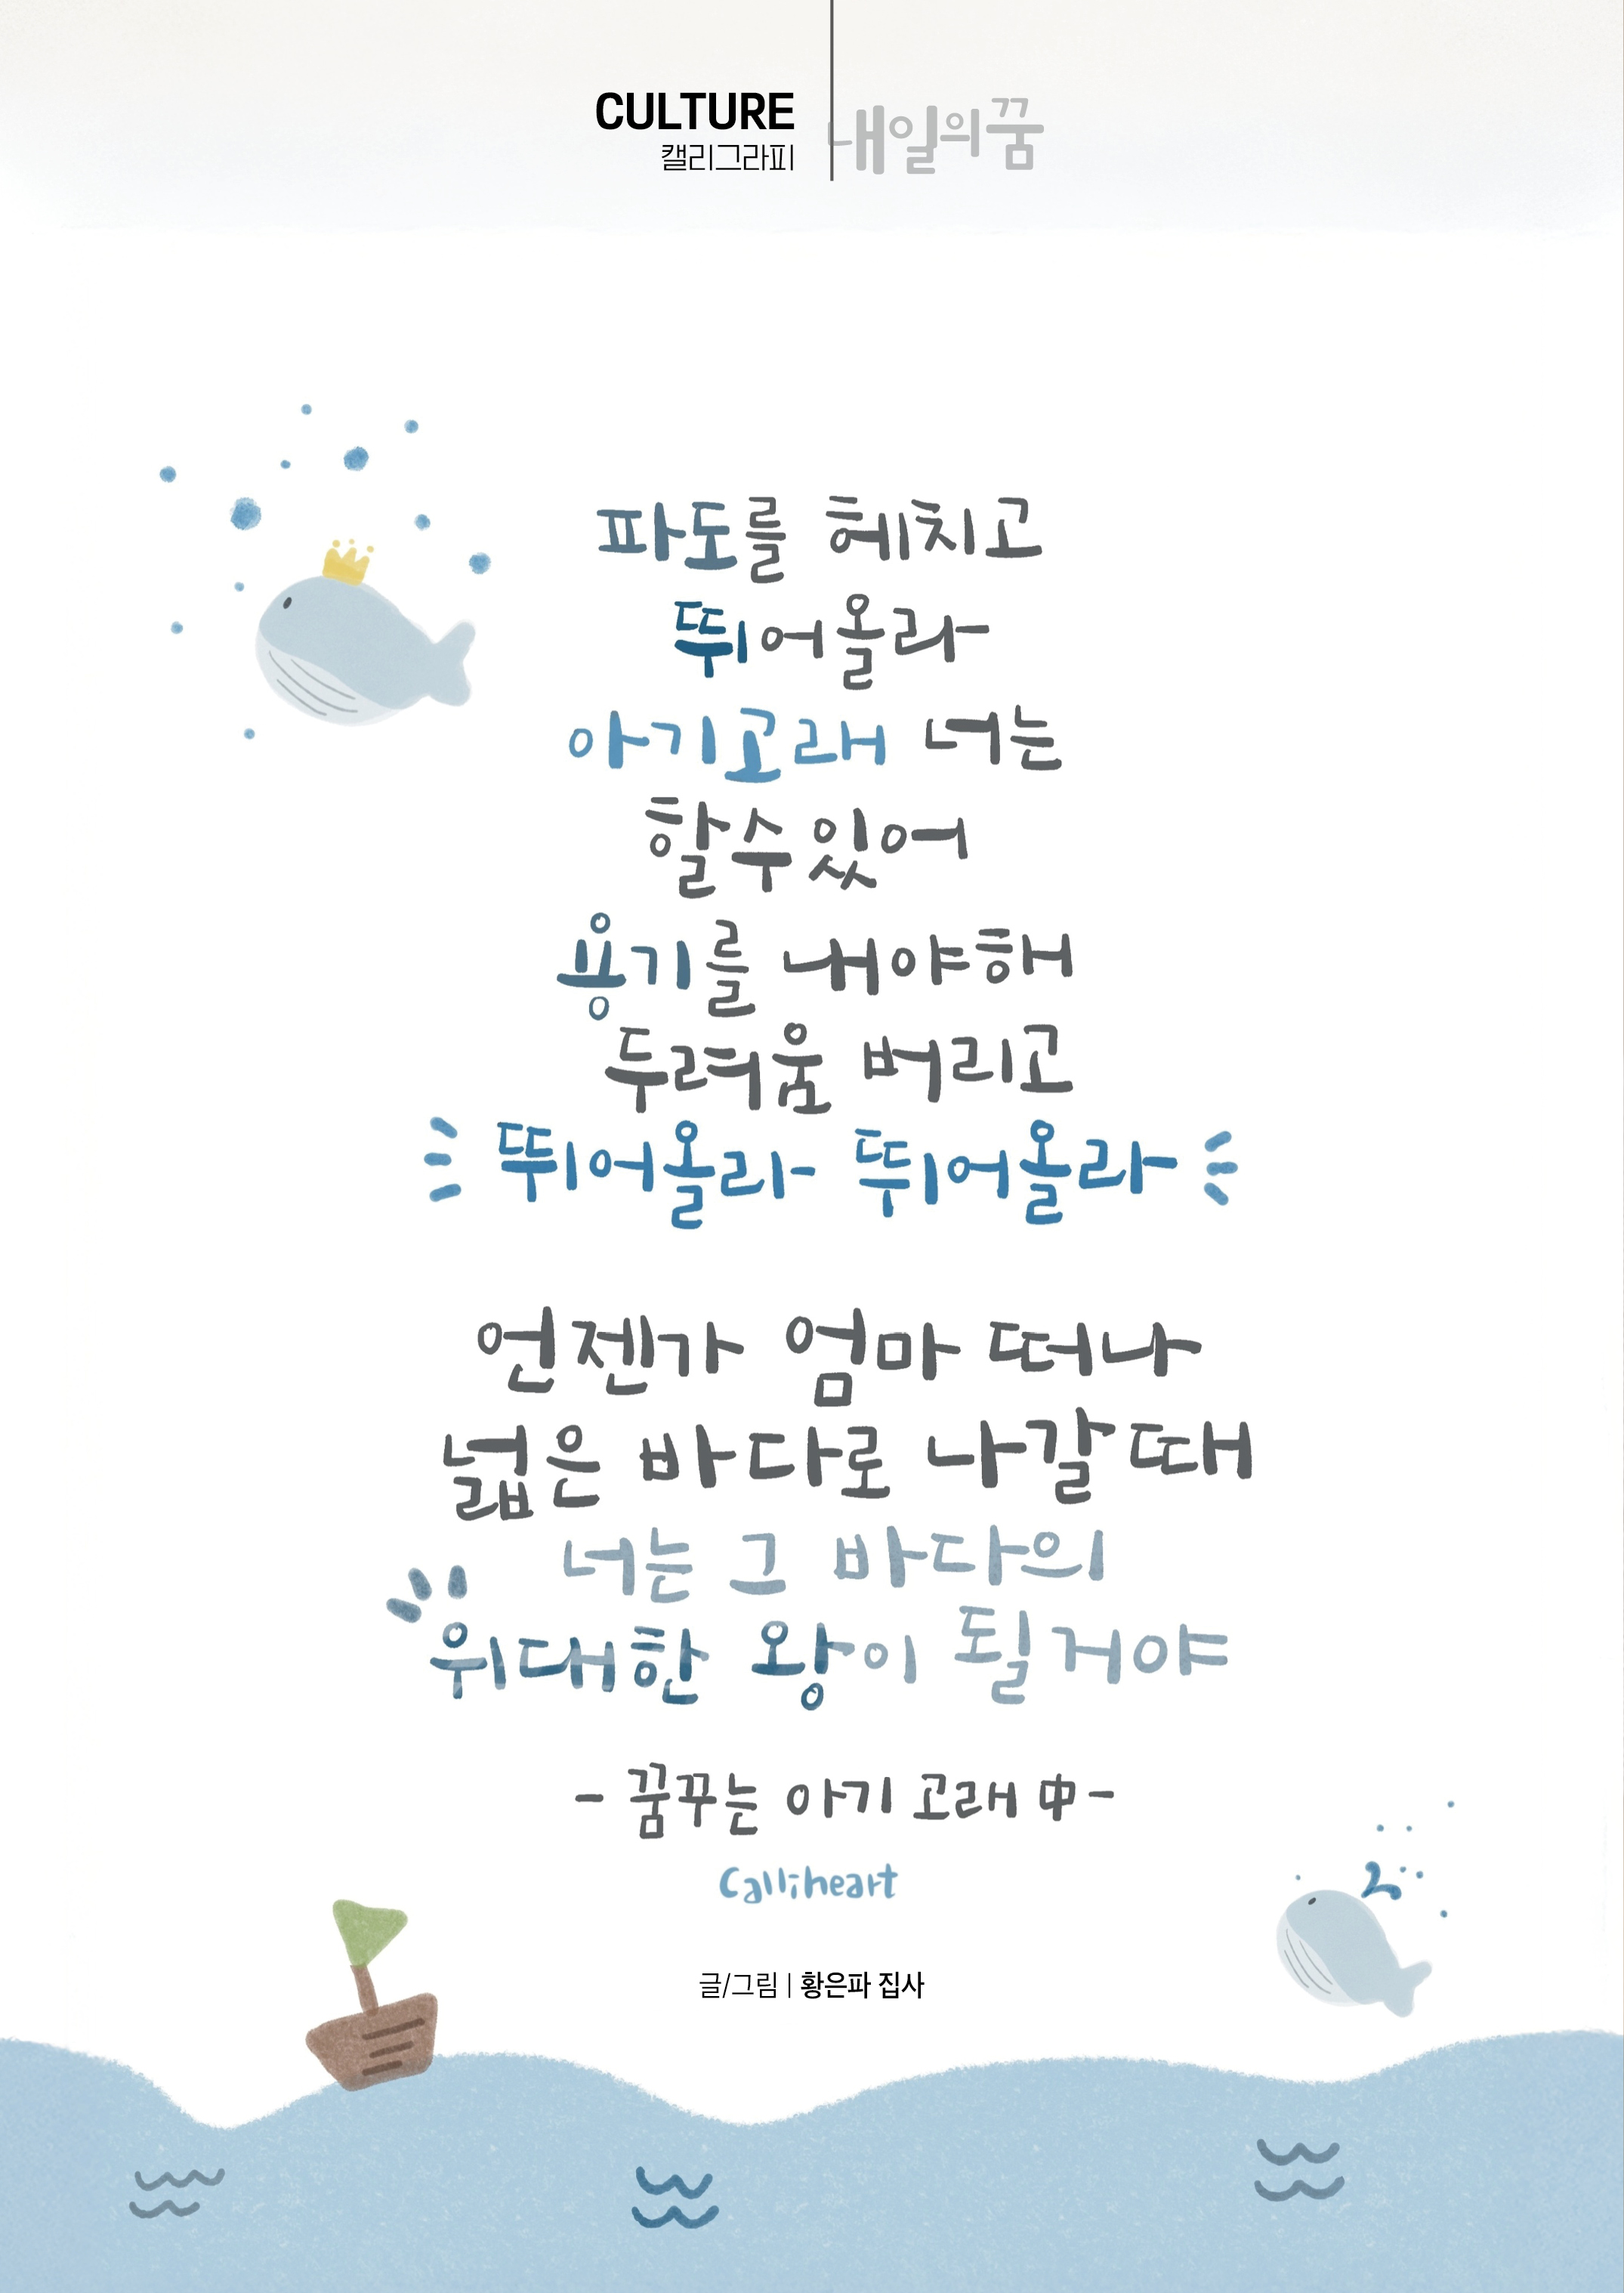 CULTURE
캘리그라피
내일의꿈
파도를 헤치고
뛰어올라
아기고래 너는
할수있어
용기를 내야해
두려움 버리고
뛰어올라 뛰어올라
언젠가 엄마 떠나
넓은 바다로 나갈때
너는 그 바다의
위대한 왕이 될거야
- 꿈꾸는 아기 고래 中-
Calliheart
글/그림 | 황은파 집사